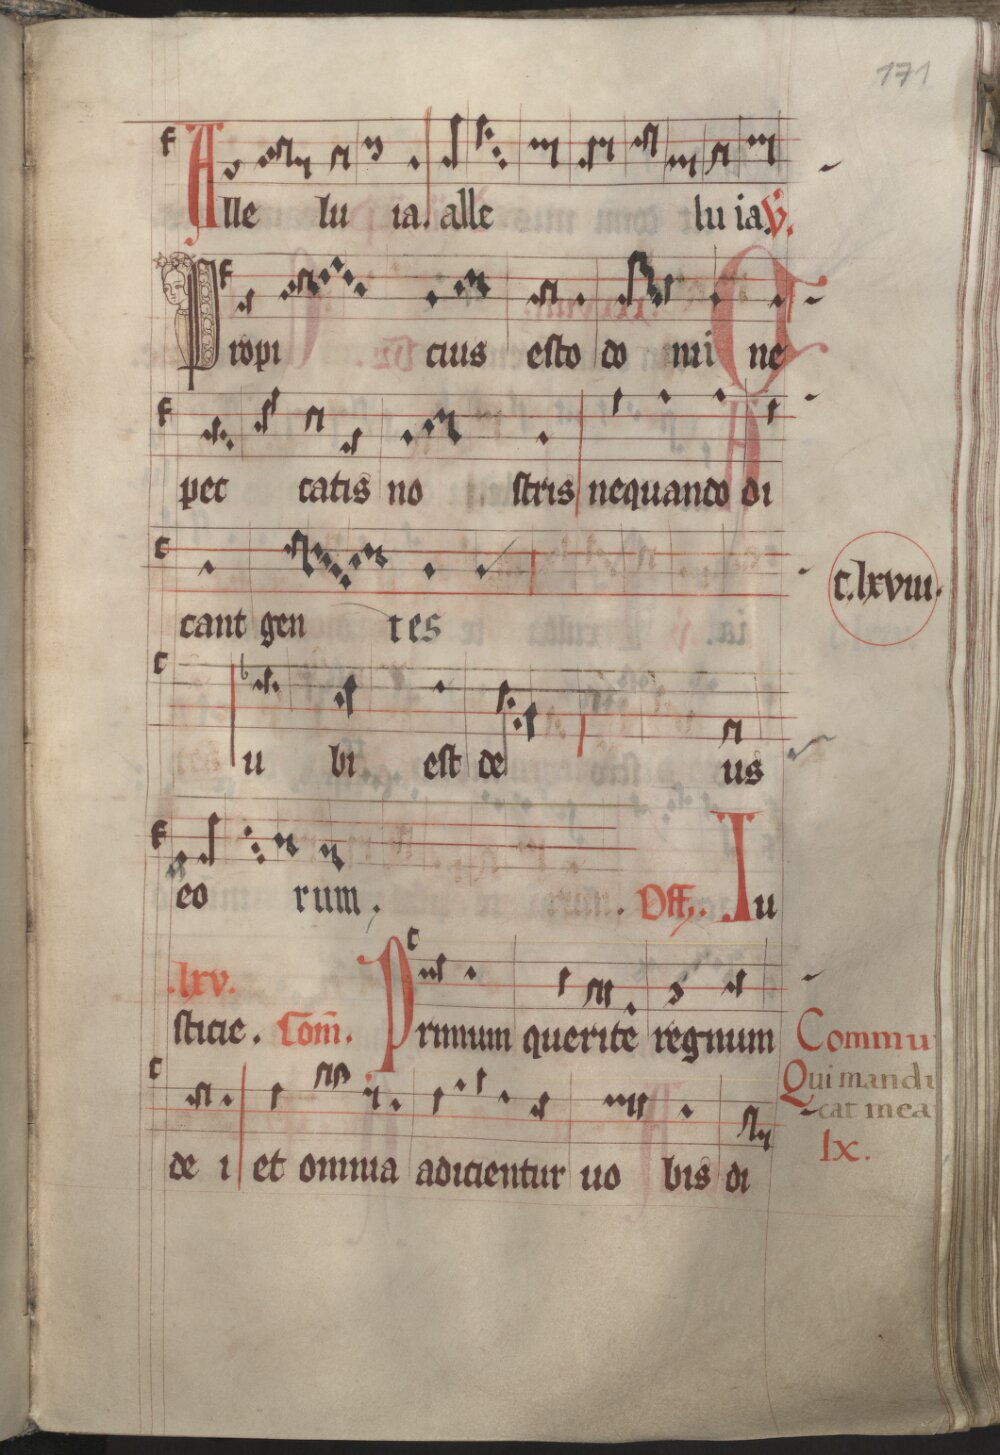 171
Alle lu ia. alle lu ia. V.
Propi cius esto do mi ne
pec catis no stris nequando di
cant gen tes
c. lxviii.
u bi est de us
eo rum. Off. Iu
.lxv.
sticie. Com̄. Primum querite regnum
Commu
Qui mandu
cat mea
lx.
de i et omnia adicientur uo bis di